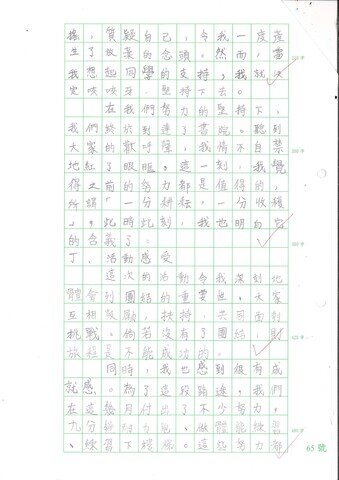 ，質疑自己，令我一度產
生了放棄的念頭。然而，當
我想起同學的支持，我就決
定咬咬牙，堅持下去。
在我們努力的堅持下，
我們終於到達了書院。聽到
大家的歡呼聲，我情不自禁
地紅了眼眶。這一刻，我覺
得之前的努力都是值得的，
所謂「一分耕耘，一分收穫
」，此時此刻，我也明白它
的含義了。
丁、活動感受
這次的活動令我深刻地
體會到團結的重要性。大家
互相鼓勵，扶持，共同面對
挑戰。倘若沒有了團結，則
旅程是不能成功的。
同時，我也感到很有成
就感。為了這段路途，我們
在這幾月付出了不少努力。
九分鐘，做體能練習
、練習下樓梯。這些努力都
65 號